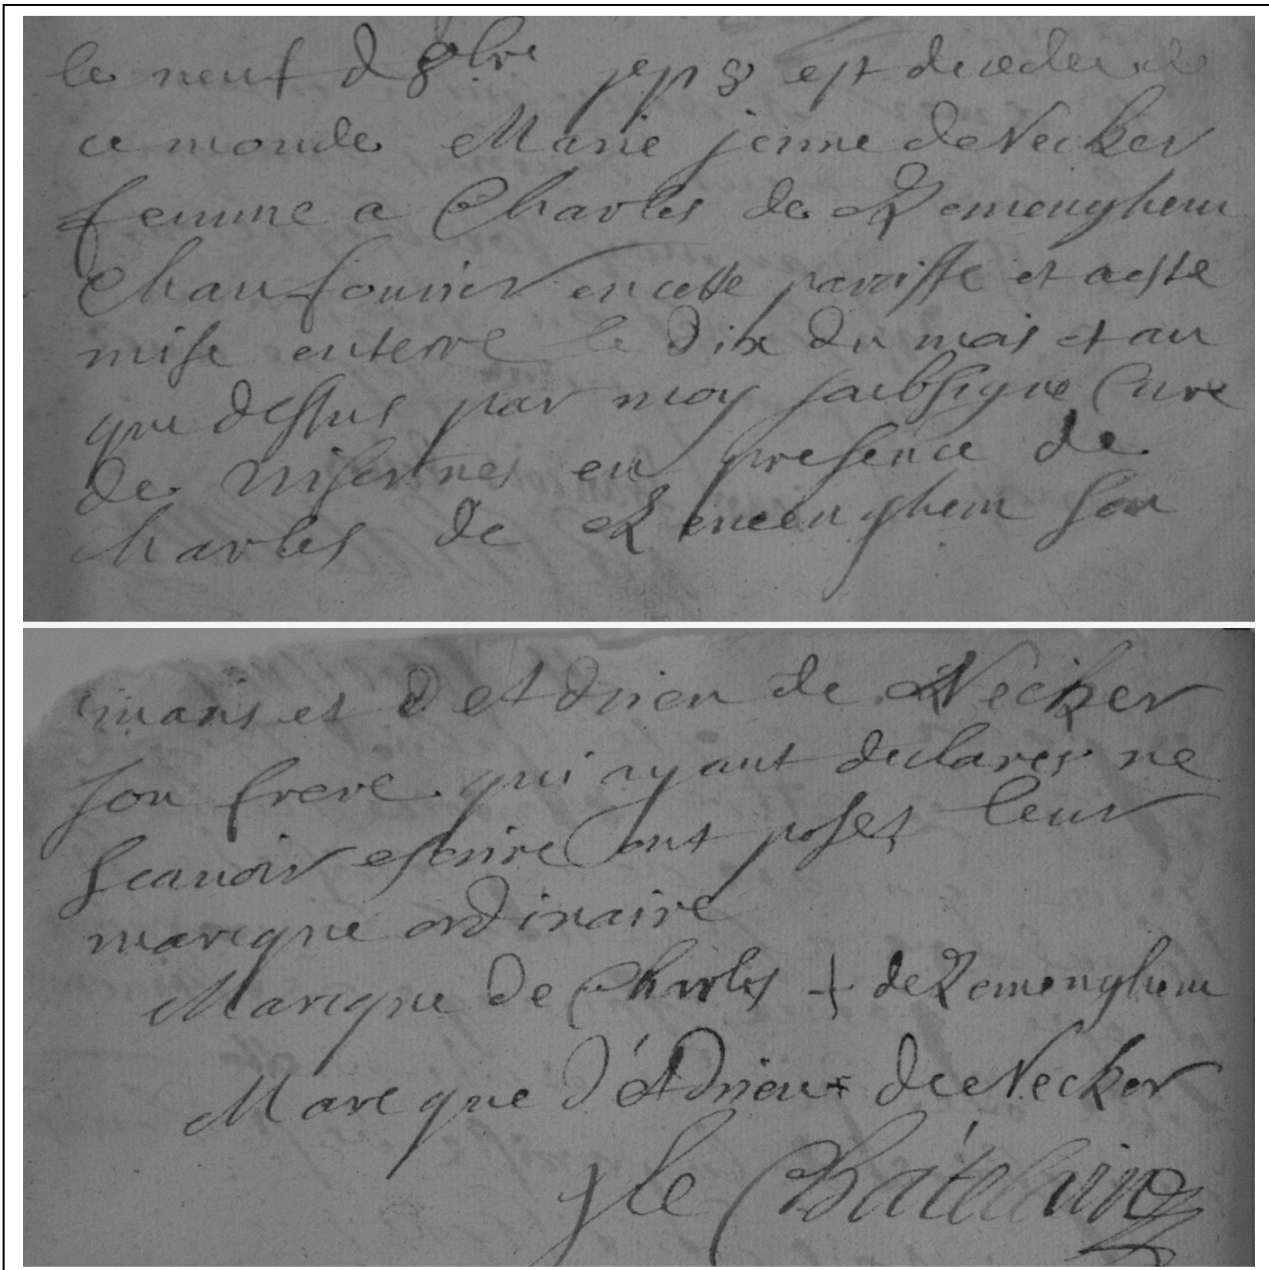 le neuf d 8bre est decedee de
ce monde Marie jenne de Necker
femme a Charles de Zemenghem
Chaufourier en cette paroisse et a este
mise enterre le dix du mois et an
que dessus par moy soubsigne Cure
de Wisernes en presence de
Charles de Zemenghem son
maris et d Adrien de Necker
son frere qui ayant declares ne
scauoir escrire ont poset leur
marcque ordinaire
Marcque de Charles + de Zemenghem
Marcque d'Adrien + de Necker
J le Chátelain